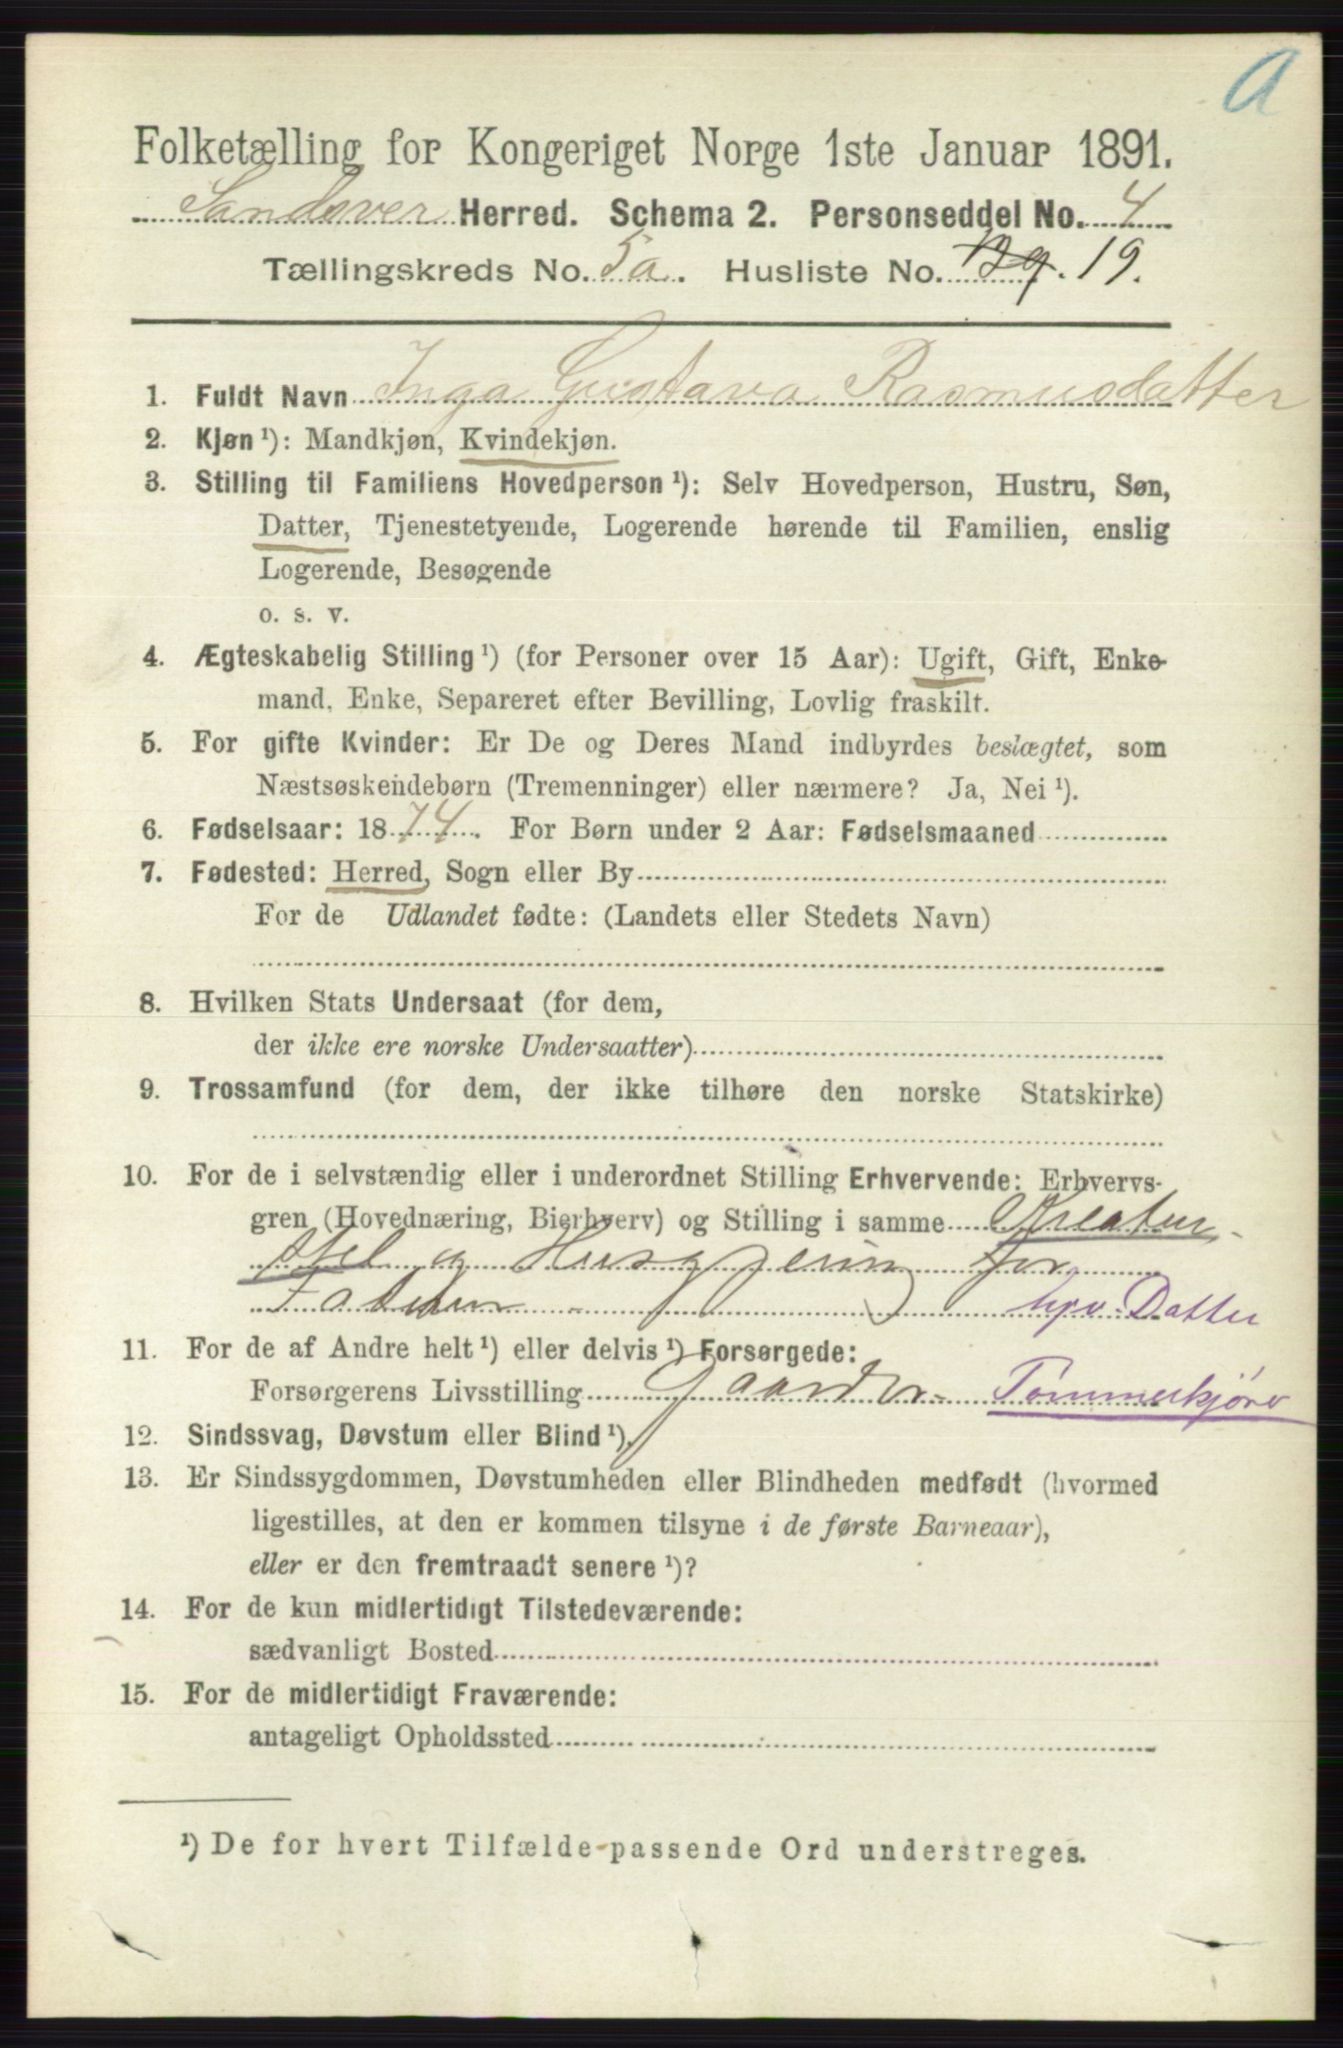 A
Folketælling for Kongeriget Norge 1ste Januar 1891.
Sandsver Herred. Schema 2. Personseddel No. 4
Tællingskreds No. 5a. Husliste No. 129. 19.
1. Fuldt Navn Inga Gustava Rasmusdatter
2. Kjøn ¹): Mandkjøn, Kvindekjøn.
3. Stilling til Familiens Hovedperson ¹): Selv Hovedperson, Hustru, Søn,
Datter, Tjenestetyende, Logerende hørende til Familien, enslig
Logerende, Besøgende
o. s. v.
4. Ægteskabelig Stilling ¹) (for Personer over 15 Aar): Ugift, Gift, Enke-
mand, Enke, Separeret efter Bevilling, Lovlig fraskilt.
5. For gifte Kvinder: Er De og Deres Mand indbyrdes beslægtet, som
Næstsøskendebørn (Tremenninger) eller nærmere? Ja, Nei ¹).
6. Fødselsaar: 1874. For Børn under 2 Aar: Fødselsmaaned
7. Fødested: Herred, Sogn eller By
For de Udlandet fødte: (Landets eller Stedets Navn)
8. Hvilken Stats Undersaat (for dem,
der ikke ere norske Undersaatter)
9. Trossamfund (for dem, der ikke tilhøre den norske Statskirke)
10. For de i selvstændig eller i underordnet Stilling Erhvervende: Erhvervs-
gren (Hovednæring, Bierhverv) og Stilling i samme Kreatur-
stel og Husgjerning for
Faderen hjv. Datter
11. For de af Andre helt ¹) eller delvis ¹) Forsørgede:
Forsørgerens Livsstilling Gaardbr. Tømmerkjører
12. Sindssvag, Døvstum eller Blind ¹).
13. Er Sindssygdommen, Døvstumheden eller Blindheden medfødt (hvormed
ligestilles, at den er kommen tilsyne i de første Barneaar),
eller er den fremtraadt senere ¹)?
14. For de kun midlertidigt Tilstedeværende:
sædvanligt Bosted
15. For de midlertidigt Fraværende:
antageligt Opholdssted
¹) De for hvert Tilfælde passende Ord understreges.